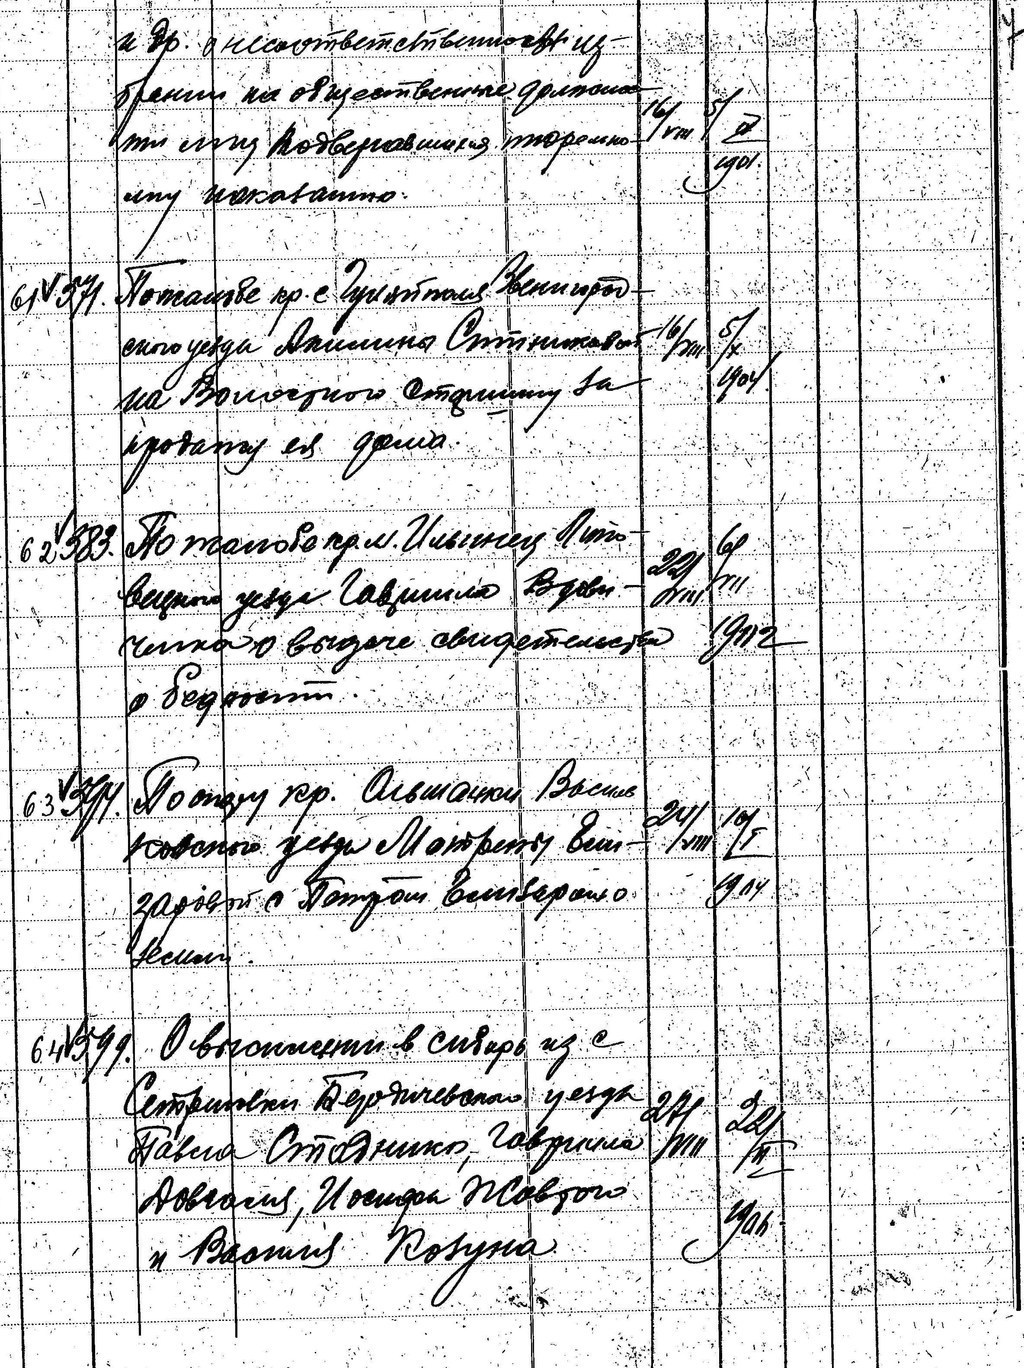 и др. о несоответственности из-
брания на общественные должнос-
ти лиц подвергавшихся тюремно-
му наказанию.
16/VIII 5/IX 1901.
61 371. По жалобе кр. с. Звенигород-
ского уезда Акилины Ситниковой
на Волостного Старшину за
продажу ея дома.
16/VIII 5/X 1904
62 383. По жалобе кр. м. Ильинец Липо-
вецкого уезда Гавриила Вдови-
ченка о выдаче свидетельства
о бедности.
22/VIII 6/VII 1902
63 По спору кр. Ольшанки Василь
ковского уезда Матрены Ели-
заровой с Петром Елизаровым о
земли.
24/VIII 10/I 1904
64 399. О выселении в Сибирь из с
Сестриновки Бердичевского уезда
Павла Стадника, Гавриила
Довгалия, Иосифа Жовтого
и Василия Козуна
27/VIII 22/II